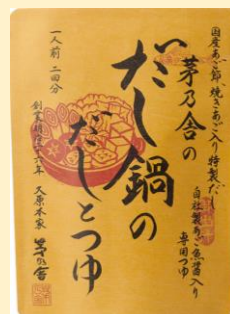 国産あご節、焼きあご入り特製だし
茅乃舎の
だし鍋の
だしとつゆ
自社製あご魚醤入り
専用つゆ
一人前 二回分
創業明治二十六年 久原本家 茅乃舎